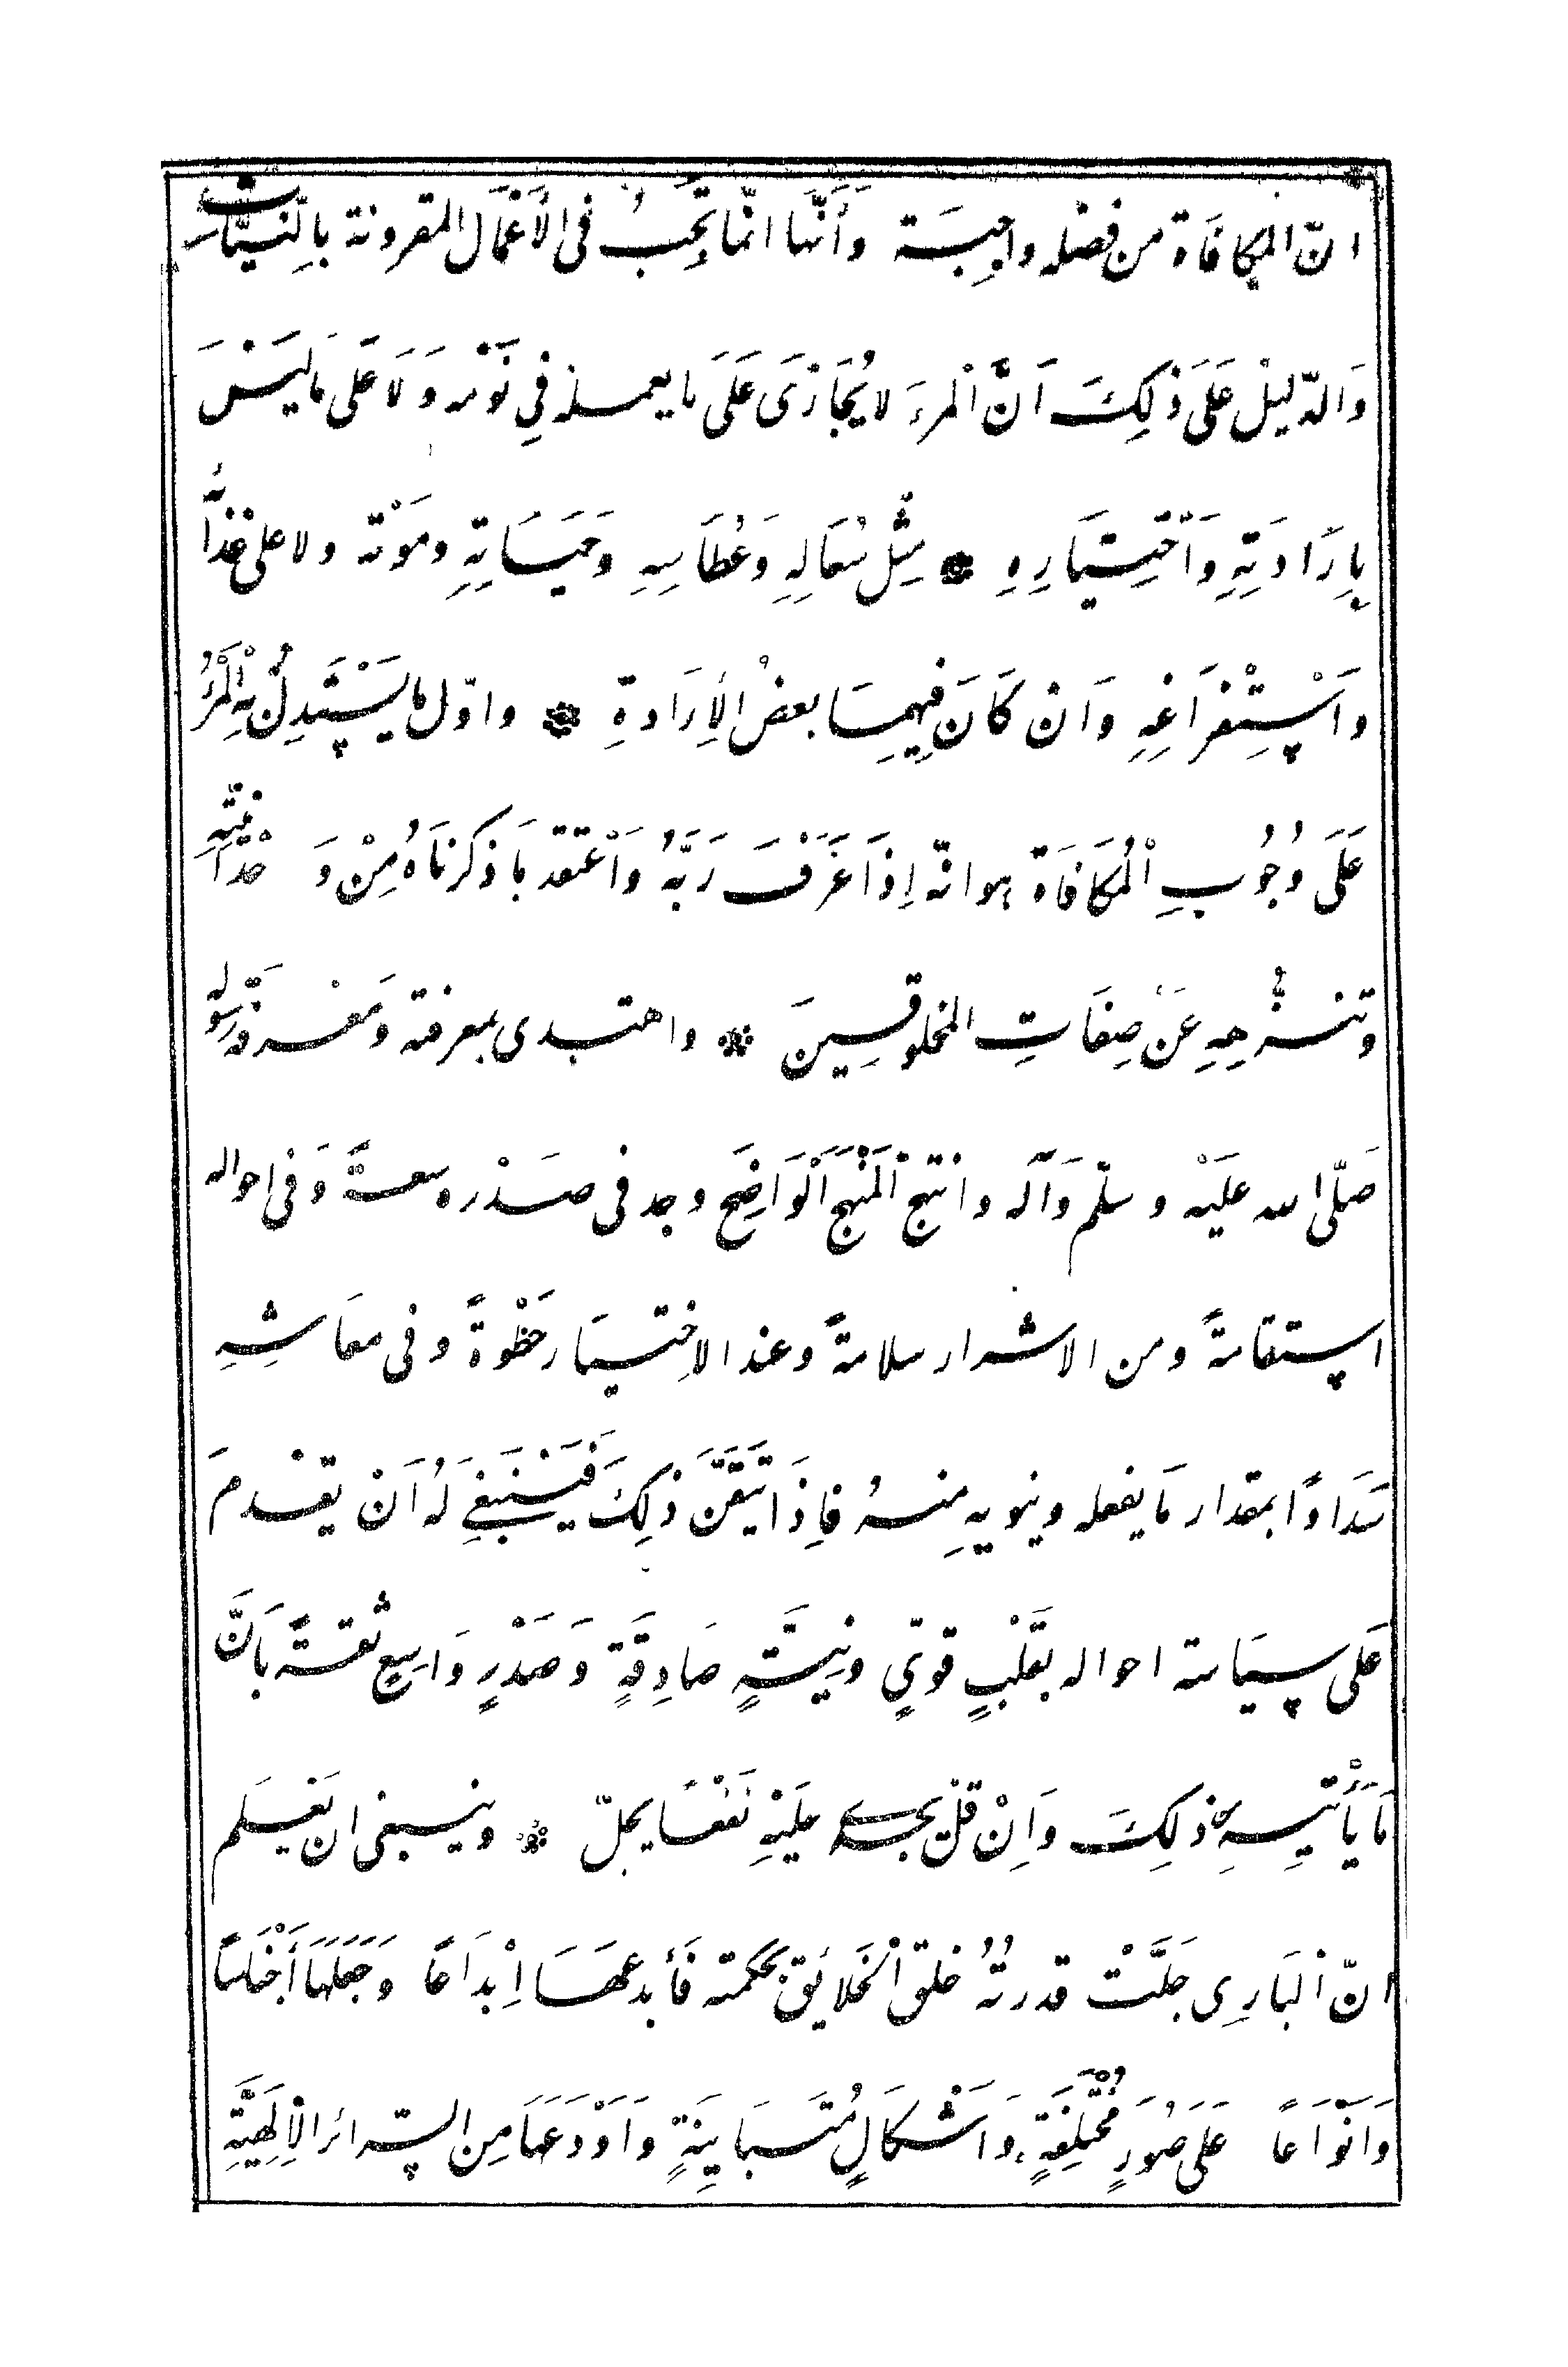 انّ المكافَاة من فضله واجِبَة وَأَنَّهَا انّمَا تَجِبُ فی الْأَعْمَال المقرونة بالِنِّيَّاتِ
وَالدّليلْ عَلَى ذٰلِكَ اَنَّ الْمرءَ لا يُجَازَى عَلَى ما يعمله فِي نَوْمه وَلَا عَلى مَا لَيْسَ
بِاِرَادَتِهِ وَاَخْتِيَارِهِ ❋ مِثْلُ سُعَالِهِ وَعُطَاسِهِ وَحَيَاتِهِ ومَوْته ولا على غذائه
واَسْتِفْرَاغِهِ وَانْ كَانَ فِيهِمَا بعضُ الْاِرَادةِ ❋ واوّل ما يَسْتَدِلُّ بهِ الْمَرْءُ
عَلَى وُجُوبِ الْمُكَافَاة هو انّه اِذَا عَرَفَ رَبَّهُ وَاعْتقد مَا ذكرنَاهُ مِنْ وَحْدَانِيَّتِهِ
وتنزُّهِهِ عَنْ صِفَاتِ المخلوقِينَ ❋ واهتدى بمعرفته وَمَعْرِفَة رَسُولِه
صَلّى الله عَلَيْه وسلّم وَآله وانتهج الْمَنْهَجَ الْوَاضِحَ وجد فی صَدْره سعةً وَفی احواله
استقامةً ومن الاشرار سلامةً وعند الاخْتيَار حَظْوَةً وفی معَاشِهِ
سَدَادًا بمقدار مَا يفعله وينويهِ مِنهُ فاِذَا تَيَقَّنَ ذٰلِكَ فَيَنْبَغِي لَهُ اَنْ يقدمَ
عَلى سيَاسة احواله بقَلْبٍ قوىٍّ ونِيَّةٍ صَادِقَةٍ وَصَدْرٍ وَاسِعٍ ثقةً بَأَنَّ
مَا يَأْتيهِ ذٰلِكَ وَاِنْ قلّ يجدى عَلَيْهِ نَفْعًا يجلّ ❋ وينبغی ان يَعْلَم
انّ الْبَارِی جَلَّتْ قدرتُهُ خلق الْخَلَائِق بحكمته فَأبدعهَا اِبْدَاعًا وَجَعَلَهَا أَجْنَاسًا
وَاَنْوَاعًا عَلَى صُوَرٍ مُخْتَلِفَةٍ وَاَشْكَالٍ مُتَبَايِنَةٍ وَاَوْدَعَهَا مِن السّرائر الْاِلٰهِيَّةِ